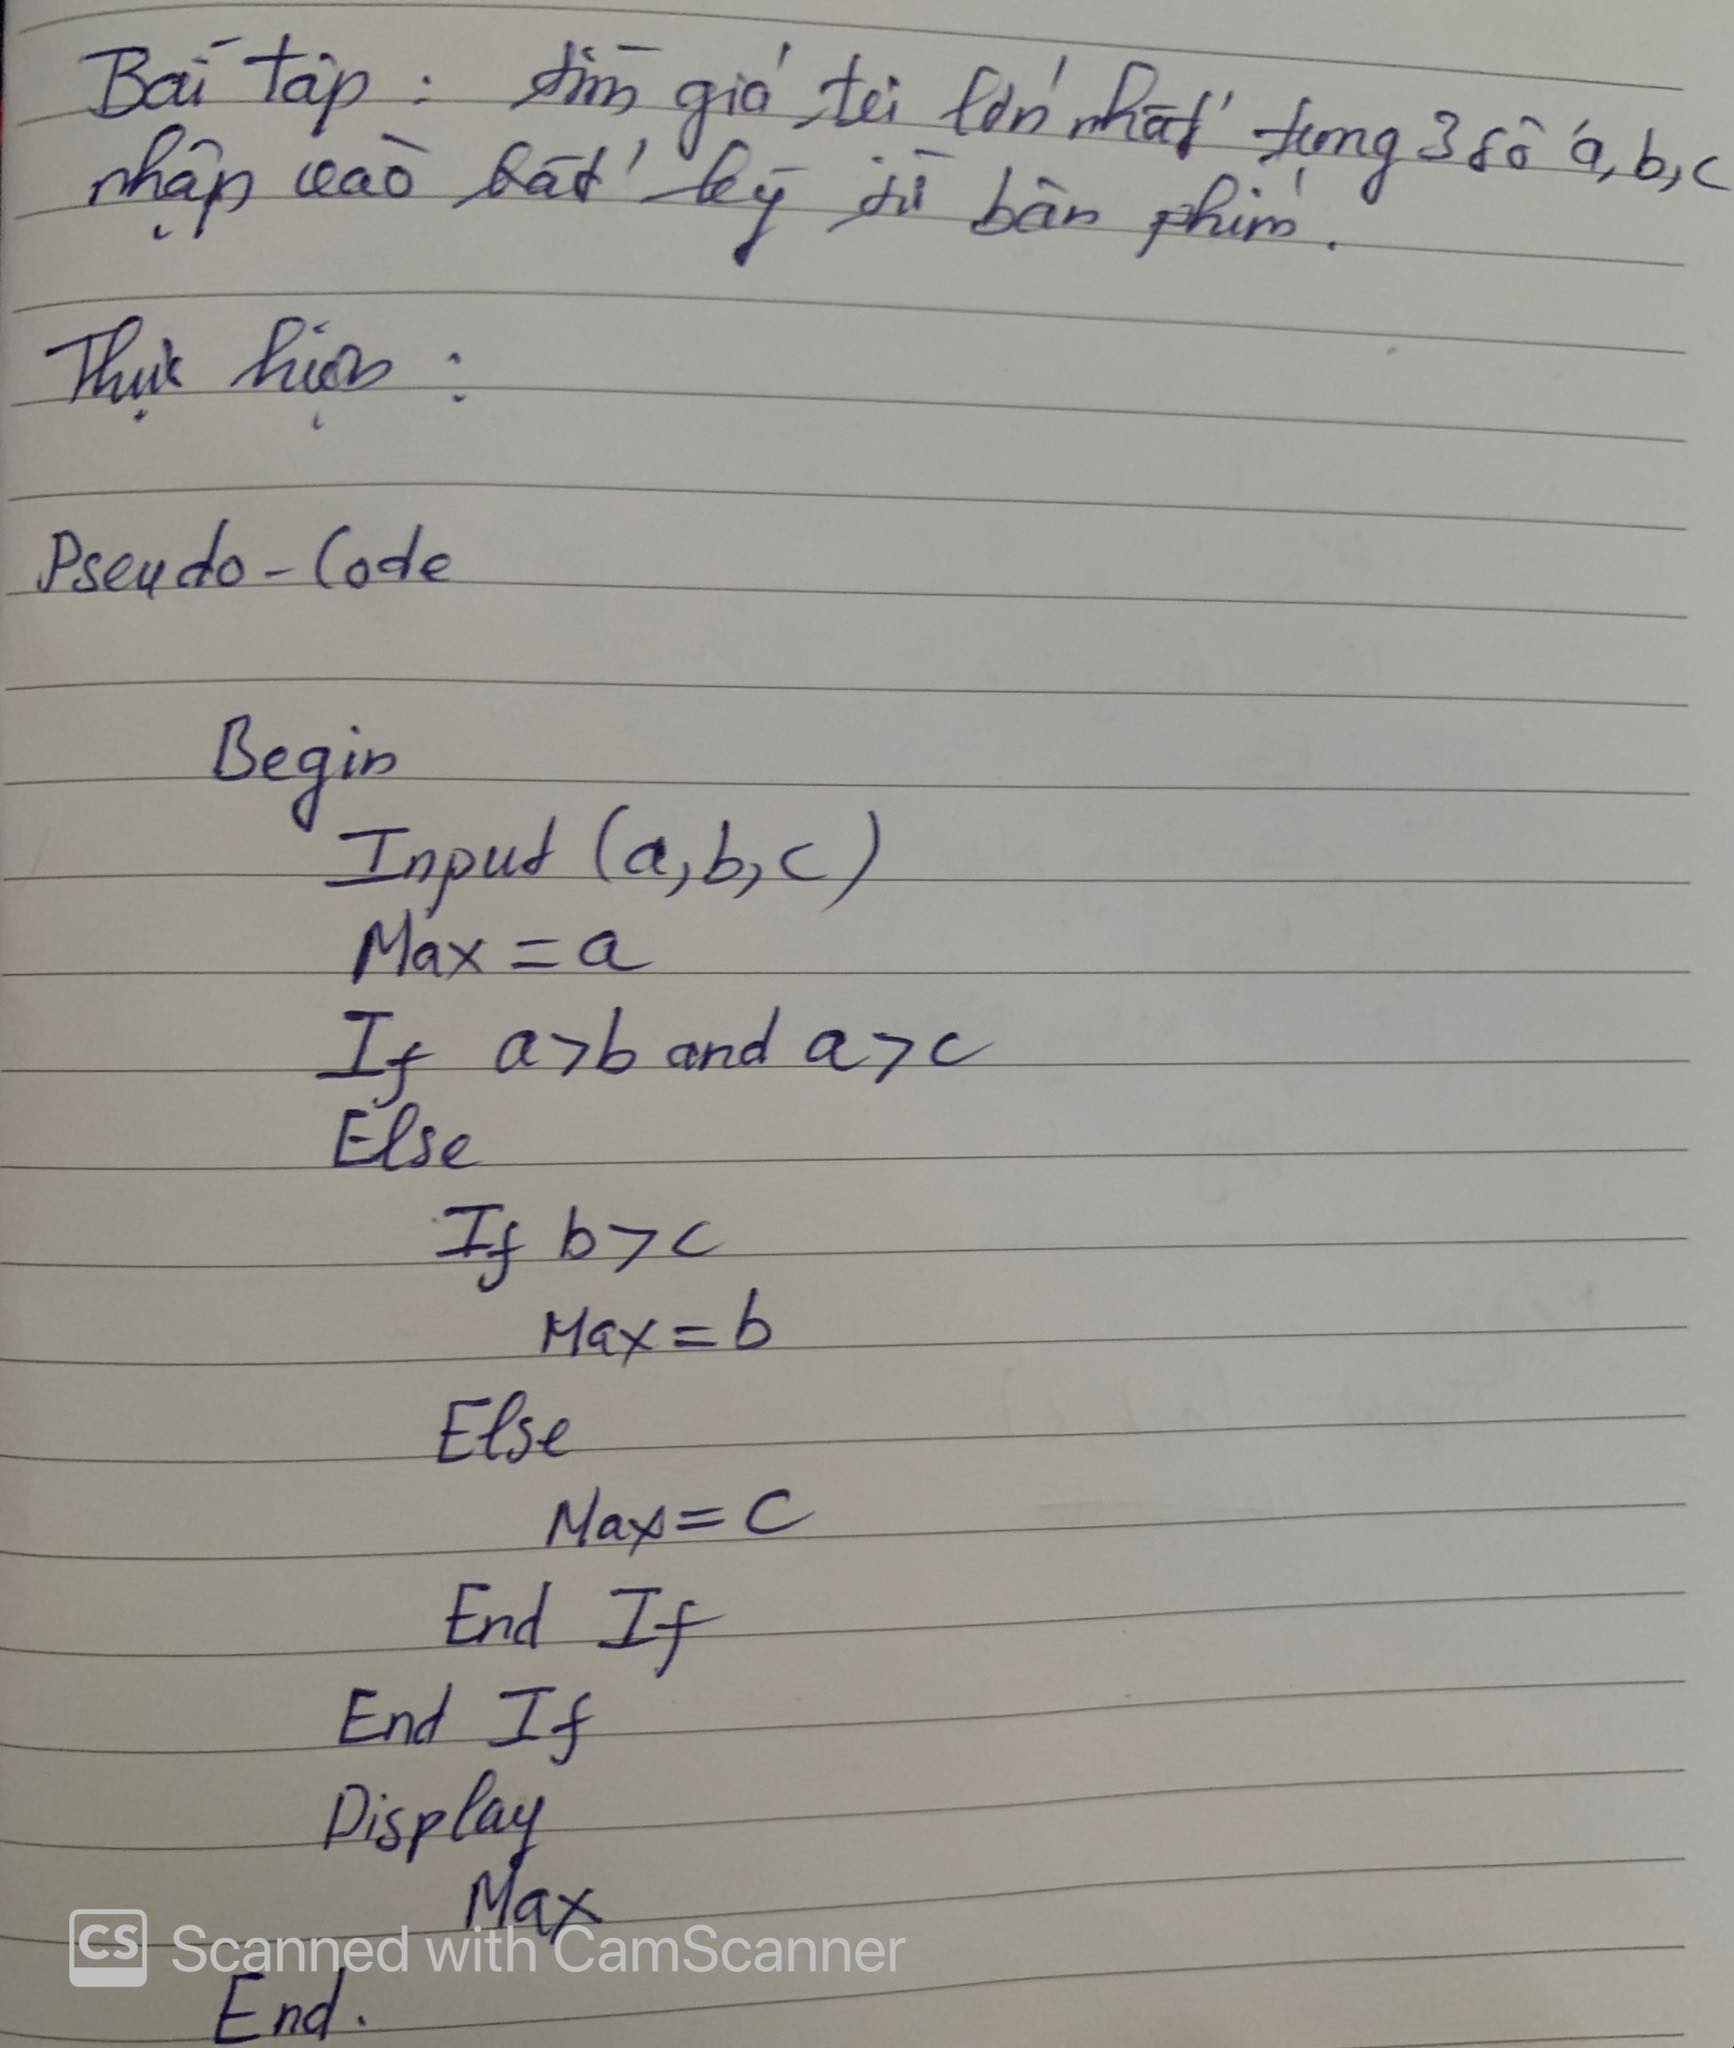 Bài tập : tìm giá trị lớn nhất trong 3 số a, b, c
nhập vào bất kỳ từ bàn phím.
Thực hiện :
Pseudo-Code
Begin
Input (a, b, c)
Max = a
If a>b and a>c
Else
If b>c
Max = b
Else
Max = c
End If
End If
Display
Max
CS Scanned with CamScanner
End.